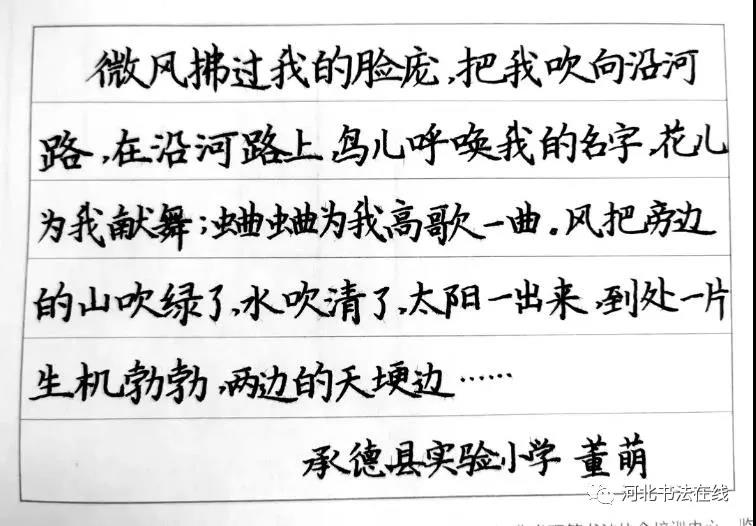 微风拂过我的脸庞,把我吹向沿河
路,在沿河路上,鸟儿呼唤我的名字,花儿
为我献舞;蛐蛐为我高歌一曲.风把旁边
的山吹绿了,水吹清了,太阳一出来,到处一片
生机勃勃,两边的天埂边……
承德县实验小学 董萌
河北书法在线